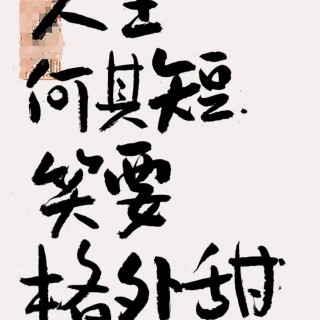 人生
何其短.
笑要
格外甜